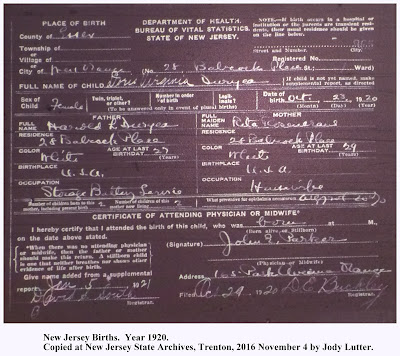 PLACE OF BIRTH
County of Essex
Township of
or
Village of
or
City of West Orange
DEPARTMENT OF HEALTH.
BUREAU OF VITAL STATISTICS.
STATE OF NEW JERSEY.
NOTE.—If birth occurs in a hospital
or institution or the parents are transient residents,
their usual residence should be given
on the line below.
Street and Number. City.
Registered No.
(No. 28, Babcock Place, Ward)
FULL NAME OF CHILD Doris Virginia Duryea
If child is not yet named, make
supplemental report, as directed
Sex of
Child Female
Twin, triplet,
or other?
Number in order
of birth
(To be answered only in event of plural births)
Legitimate?
Date of
birth Oct. 23, 1920
(Month) (Day) (Year)
FATHER
FULL
NAME Harold F. Duryea
RESIDENCE
28 Babcock Place
COLOR
White
AGE AT LAST
BIRTHDAY 27
(Years)
BIRTHPLACE
U.S.A.
OCCUPATION
Storage Battery Service
MOTHER
FULL
MAIDEN
NAME Rita
RESIDENCE
28 Babcock Place
COLOR
White
AGE AT LAST
BIRTHDAY 29
(Years)
BIRTHPLACE
U.S.A.
OCCUPATION
Housewife
Number of children born to this
mother, including present birth 2
Number of children of this
mother now living 2
What preventive for ophthalmia neonatorum
CERTIFICATE OF ATTENDING PHYSICIAN OR MIDWIFE*
I hereby certify that I attended the birth of this child, who was born at M.,
on the date above stated.
(Born alive or Stillborn)
*When there was no attending physician
or midwife, then the father or mother
should make this return. A stillborn child
is one that neither breathes nor shows other
evidence of life after birth.
(Signature) John E. Parker
(Physician or Midwife)
Given name added from a supplemental
report Jan 5 1921
Address 165 Park Avenue Orange
Filed Oct 29 1920 D.E. Buckley
New Jersey Births. Year 1920.
Copied at New Jersey State Archives, Trenton, 2016 November 4 by Jody Lutter.